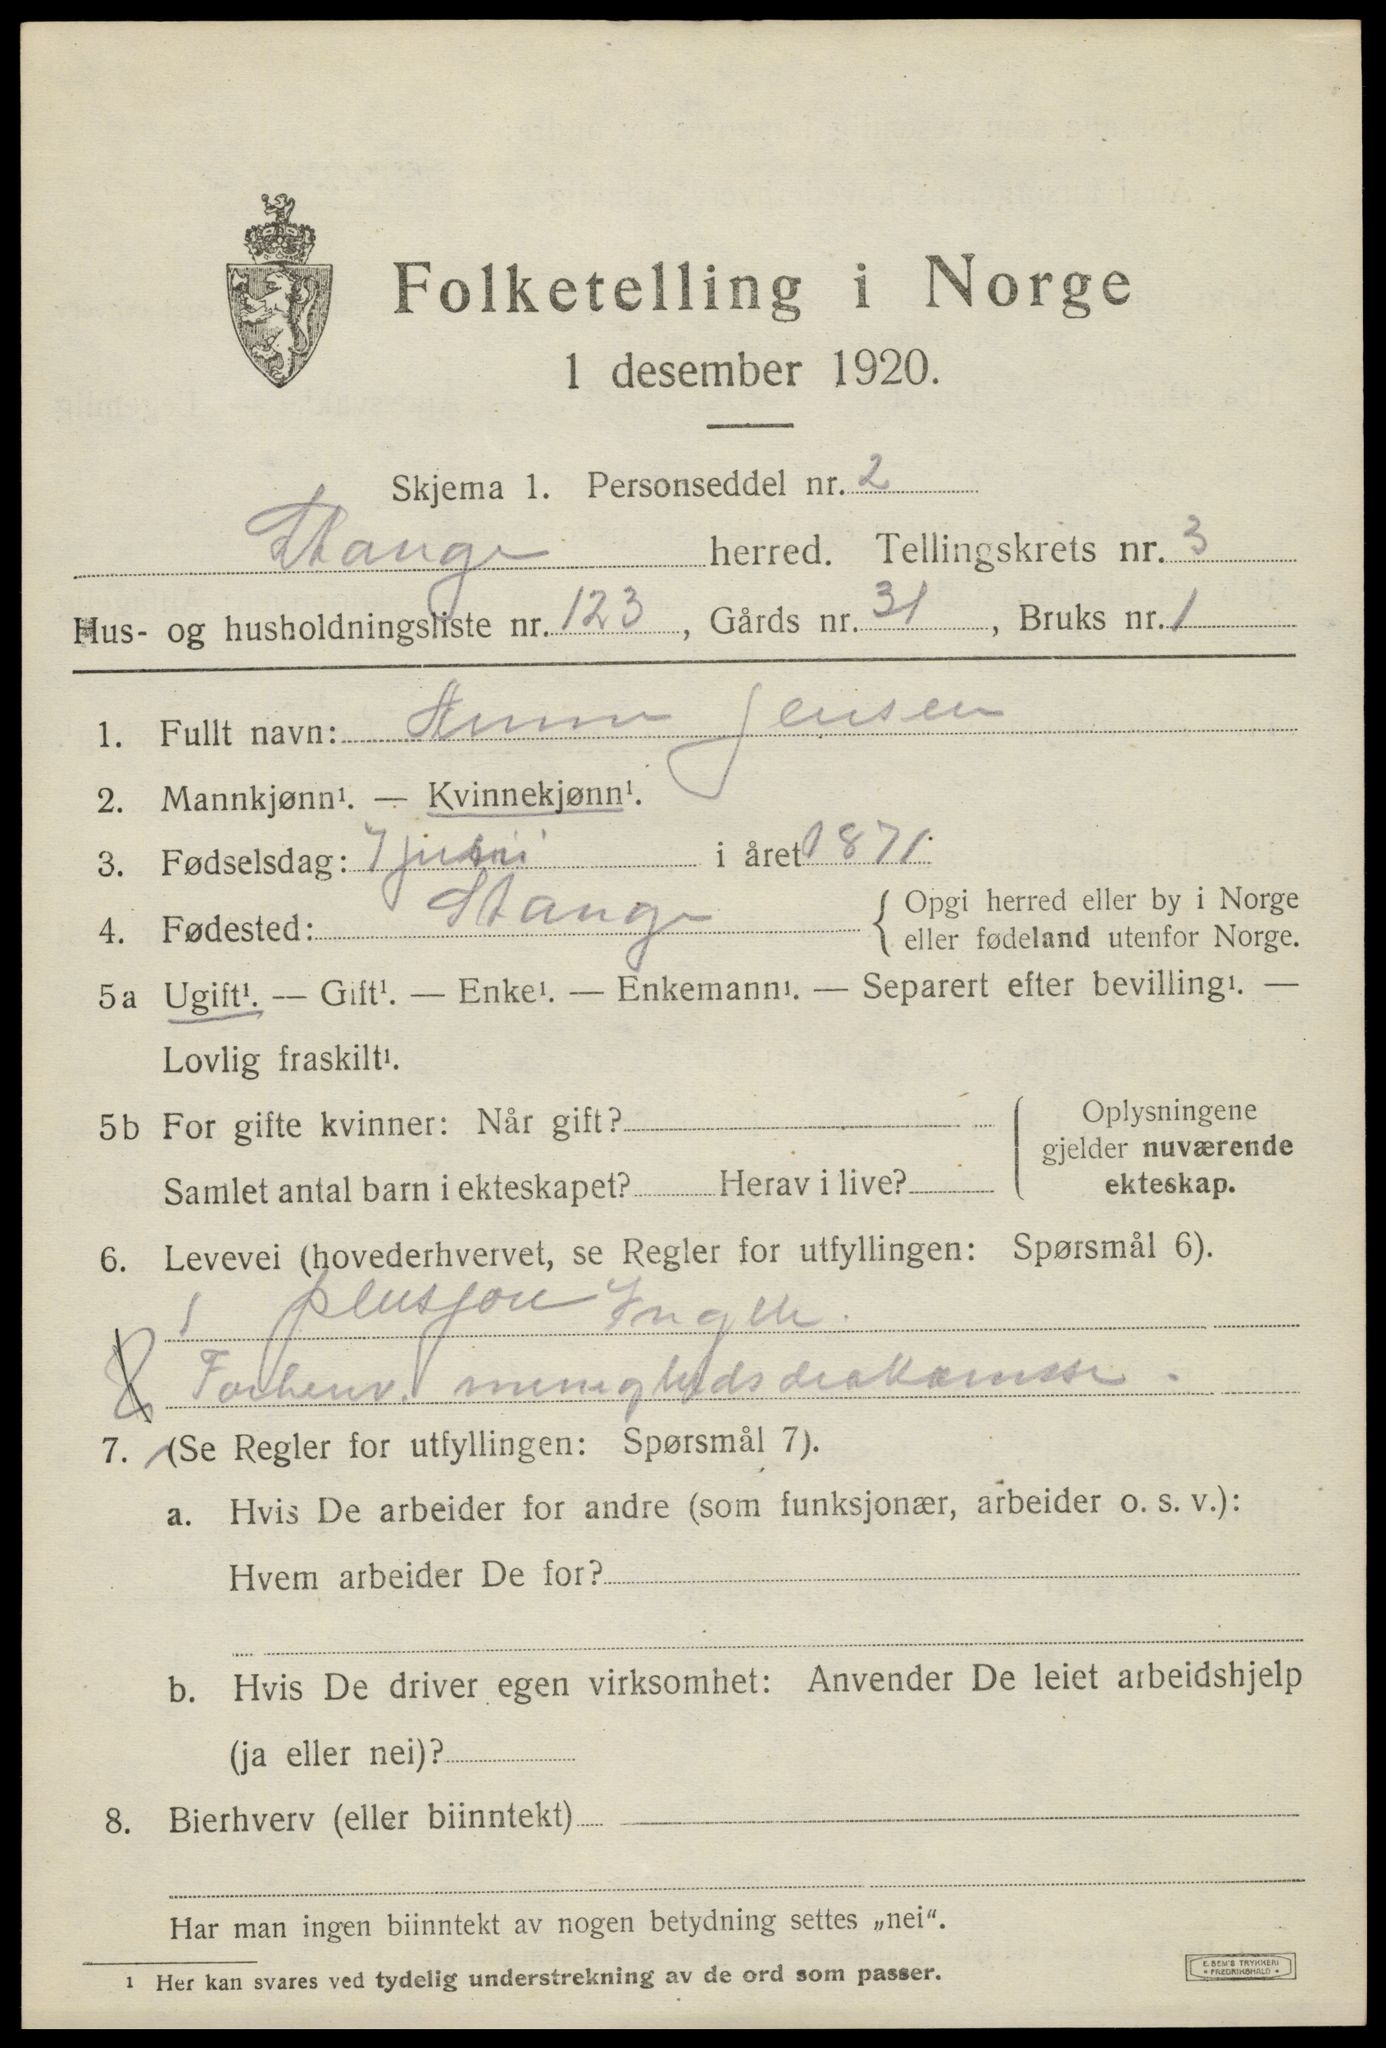 Folketelling i Norge
1 desember 1920.
Skjema 1. Personseddel nr. 2
Stange herred. Tellingskrets nr. 3
Hus- og husholdningsliste nr. 123, Gårds nr. 31, Bruks nr. 1
1. Fullt navn: Anna Jensen
2. Mannkjønn¹. — Kvinnekjønn¹.
3. Fødselsdag: 7 juni i året 1871.
4. Fødested: Stange { Opgi herred eller by i Norge
eller fødeland utenfor Norge.
5a Ugift¹. — Gift¹. — Enke¹. — Enkemann¹. — Separert efter bevilling¹. —
Lovlig fraskilt¹.
5b For gifte kvinner: Når gift? Oplysningene
gjelder nuværende
Samlet antal barn i ekteskapet? Herav i live? ekteskap.
6. Levevei (hovederhvervet, se Regler for utfyllingen: Spørsmål 6).
pensjon
Forhenv. menighedsdiakonisse.
7. (Se Regler for utfyllingen: Spørsmål 7).
a. Hvis De arbeider for andre (som funksjonær, arbeider o. s. v.):
Hvem arbeider De for?
b. Hvis De driver egen virksomhet: Anvender De leiet arbeidshjelp
(ja eller nei)?
8. Bierhverv (eller biinntekt)
Har man ingen biinntekt av nogen betydning settes „nei“.
¹ Her kan svares ved tydelig understrekning av de ord som passer.
E. SEM'S TRYKKERI
FREDRIKSHALD